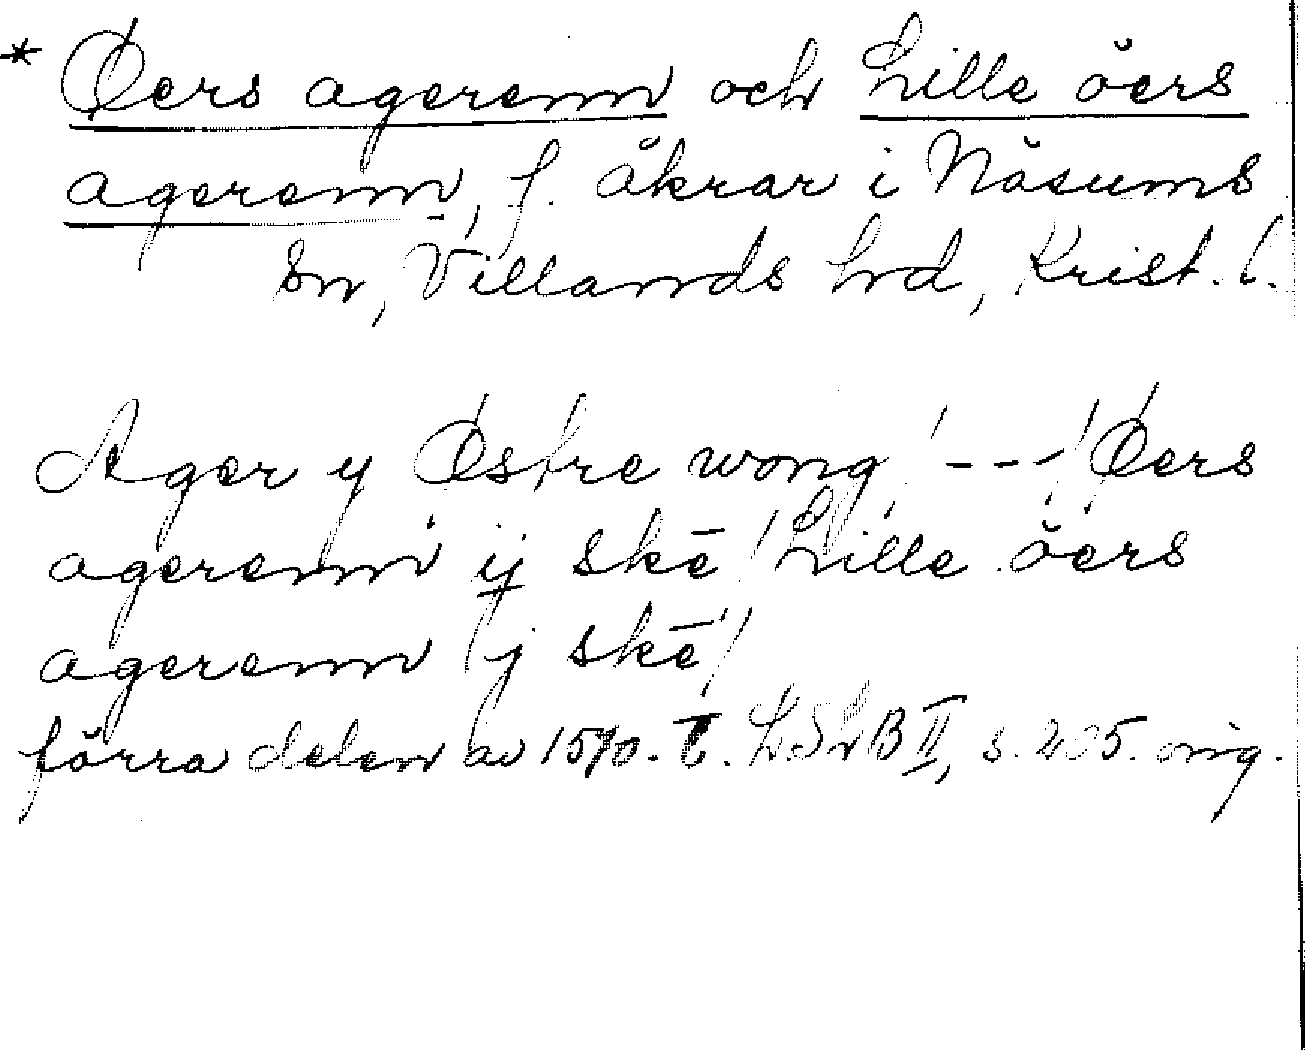 * Øers agerenn och Lille öers
agerenn, f. åkrar i Näsums
sn, Villands hd, Krist. l.
Ager y Østre wong / - - - / Øers
agerenn ij skē / Lille öers
agerenn j skē /
förra delen av 1570-t. LSLB II, s. 205. orig.